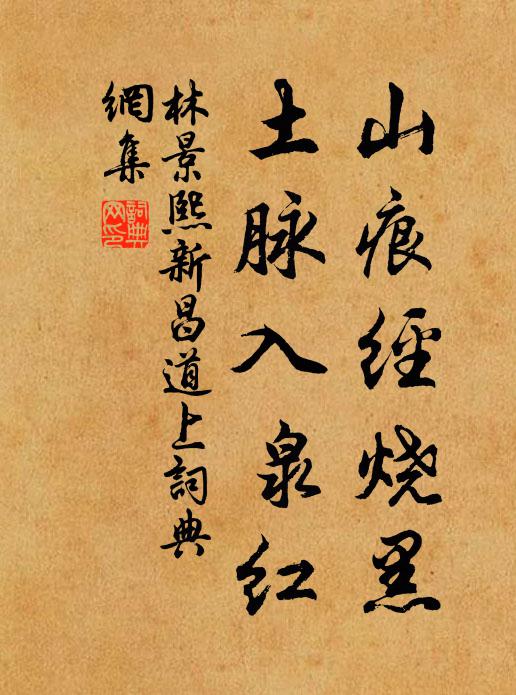 山痕經燒黑
土脉入泉紅
林景熙新昌道上詞典
網集
詞典
网印